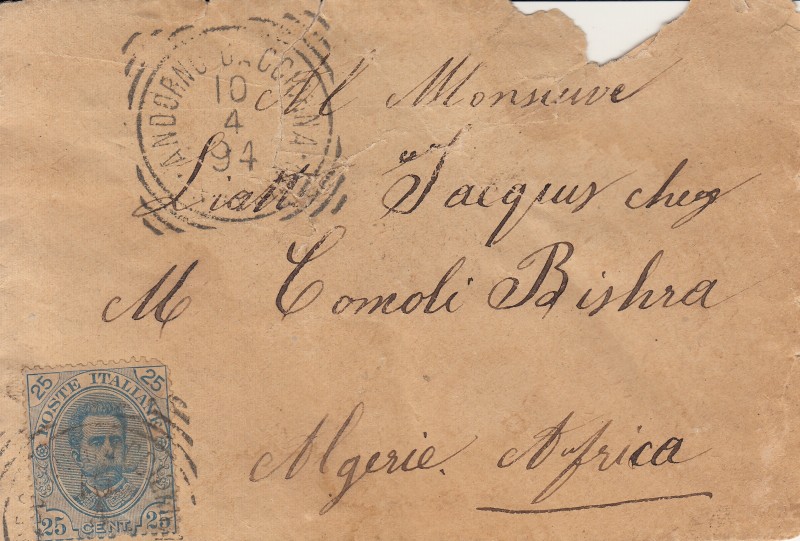 ANDORNO CACCIORNA
10
4
94
Al Monsieuve
Jacques chez
M Comoli Biskra
Algerie. Africa
25 25
POSTE ITALIANE
25 CENT. 25